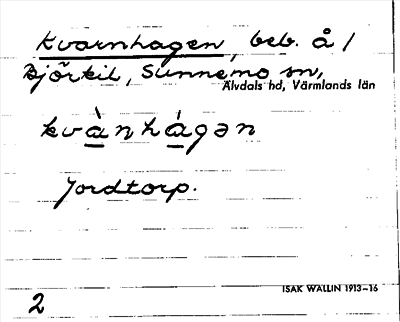 Kvarnhagen, beb. å /
Björkil, Sunnemo sn,
Älvdals hd, Värmlands län
kvànhágən
Jordtorp.
ISAK WALLIN 1913-16
2